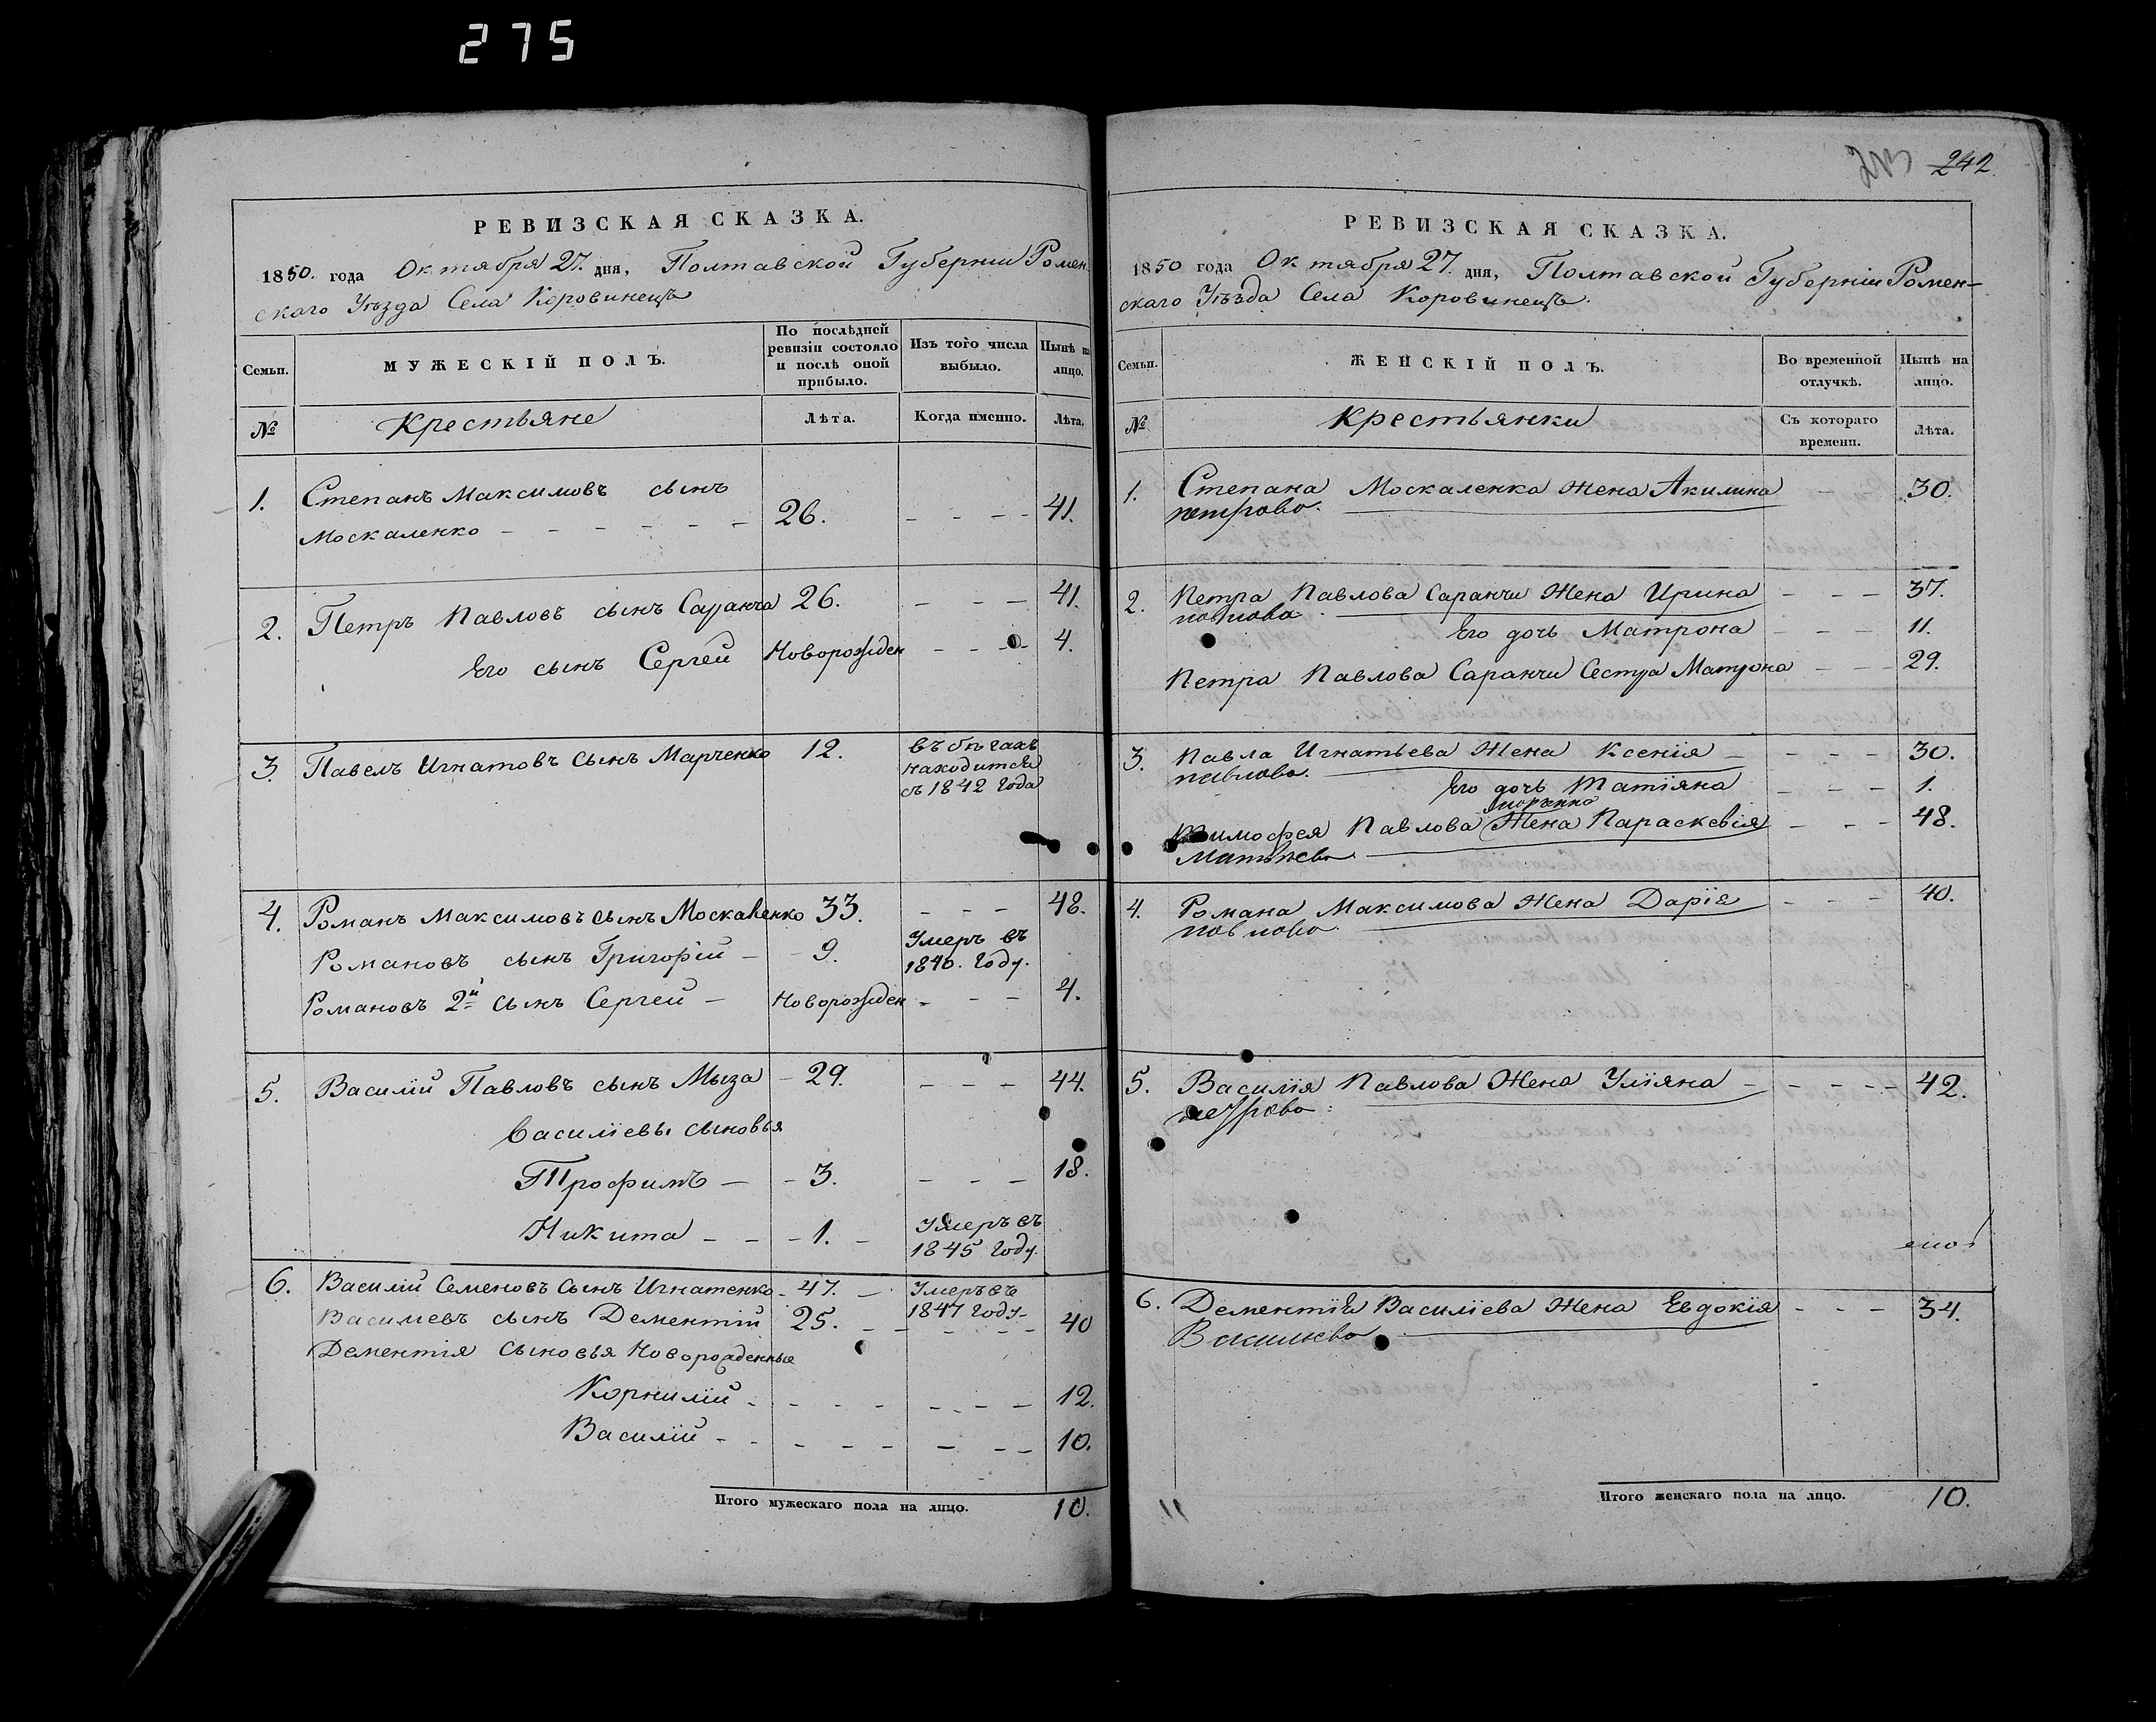 275
РЕВИЗСКАЯ СКАЗКА.
1850. года Октября 27. дня, Полтавской Губерніи Ромен-
скаго Уѣзда Села Коровинецъ
Семьи.
МУЖЕСКІЙ ПОЛЪ.
По послѣдней ревизіи состояло и послѣ оной прибыло.
Изъ того числа выбыло.
Нынѣ на лицо.
№
Крестьяне
Лѣта.
Когда именно.
Лѣта.
1. Степанъ Максимовъ сынъ
Москаленко - - - - - 26. - - - - 41.
2. Петръ Павловъ сынъ Саранча 26. - - - 41.
Его сынъ Сергей Новорожден - - - - 4.
3. Павелъ Игнатовъ сынъ Марченко 12. въ бѣгахъ
находится
съ 1842 года
4. Романъ Максимовъ сынъ Москаленко 33. - - - 48.
Романовъ сынъ Григорій - 9. Умеръ въ
1840. году.
Романовъ 2й сынъ Сергей - Новорожден - - - 4.
5. Василій Павловъ сынъ Мыза - 29. - - - 44.
Василіевы сыновья
Трофимъ - - 3. - - - 18.
Никита - - - 1. - Умеръ въ
1845 году.
6. Василій Семеновъ сынъ Игнатенко - 47. - Умеръ въ
1847 году -
Василіевъ сынъ Дементій 25. - - - - - 40
Дементія сыновья Новорожденные
Корнилій - - - - - - - - 12.
Василій - - - - - - - - 10.
Итого мужескаго пола на лицо. 10.
242.
РЕВИЗСКАЯ СКАЗКА.
1850 года Октября 27. дня, Полтавской Губерніи Ромен-
скаго Уѣзда Села Коровинецъ.
Семьи.
ЖЕНСКІЙ ПОЛЪ.
Во временной отлучкѣ.
Нынѣ на лицо.
№
Крестьянки
Съ котораго времени.
Лѣта.
1. Степана Москаленка жена Акилина - - 30.
петрова.
2. Петра Павлова Саранчи жена Ирина - - - 37.
павлова.
Его дочь Матрона - - - 11.
Петра Павлова Саранчи сестра Матрона - - - 29.
3. Павла Игнатьева жена Ксенія - - - - 30.
павлова.
Его дочь Татіяна - - - 1.
Тимофея Павлова жена Параскевія - - - 48.
Матвѣева.
4. Романа Максимова жена Дарія - - - 40.
павлова.
5. Василія Павлова жена Уліяна - - - - - 42.
петрова.
6. Дементія Василіева жена Евдокія - - - 34.
Василіева
Итого женскаго пола на лицо. 10.